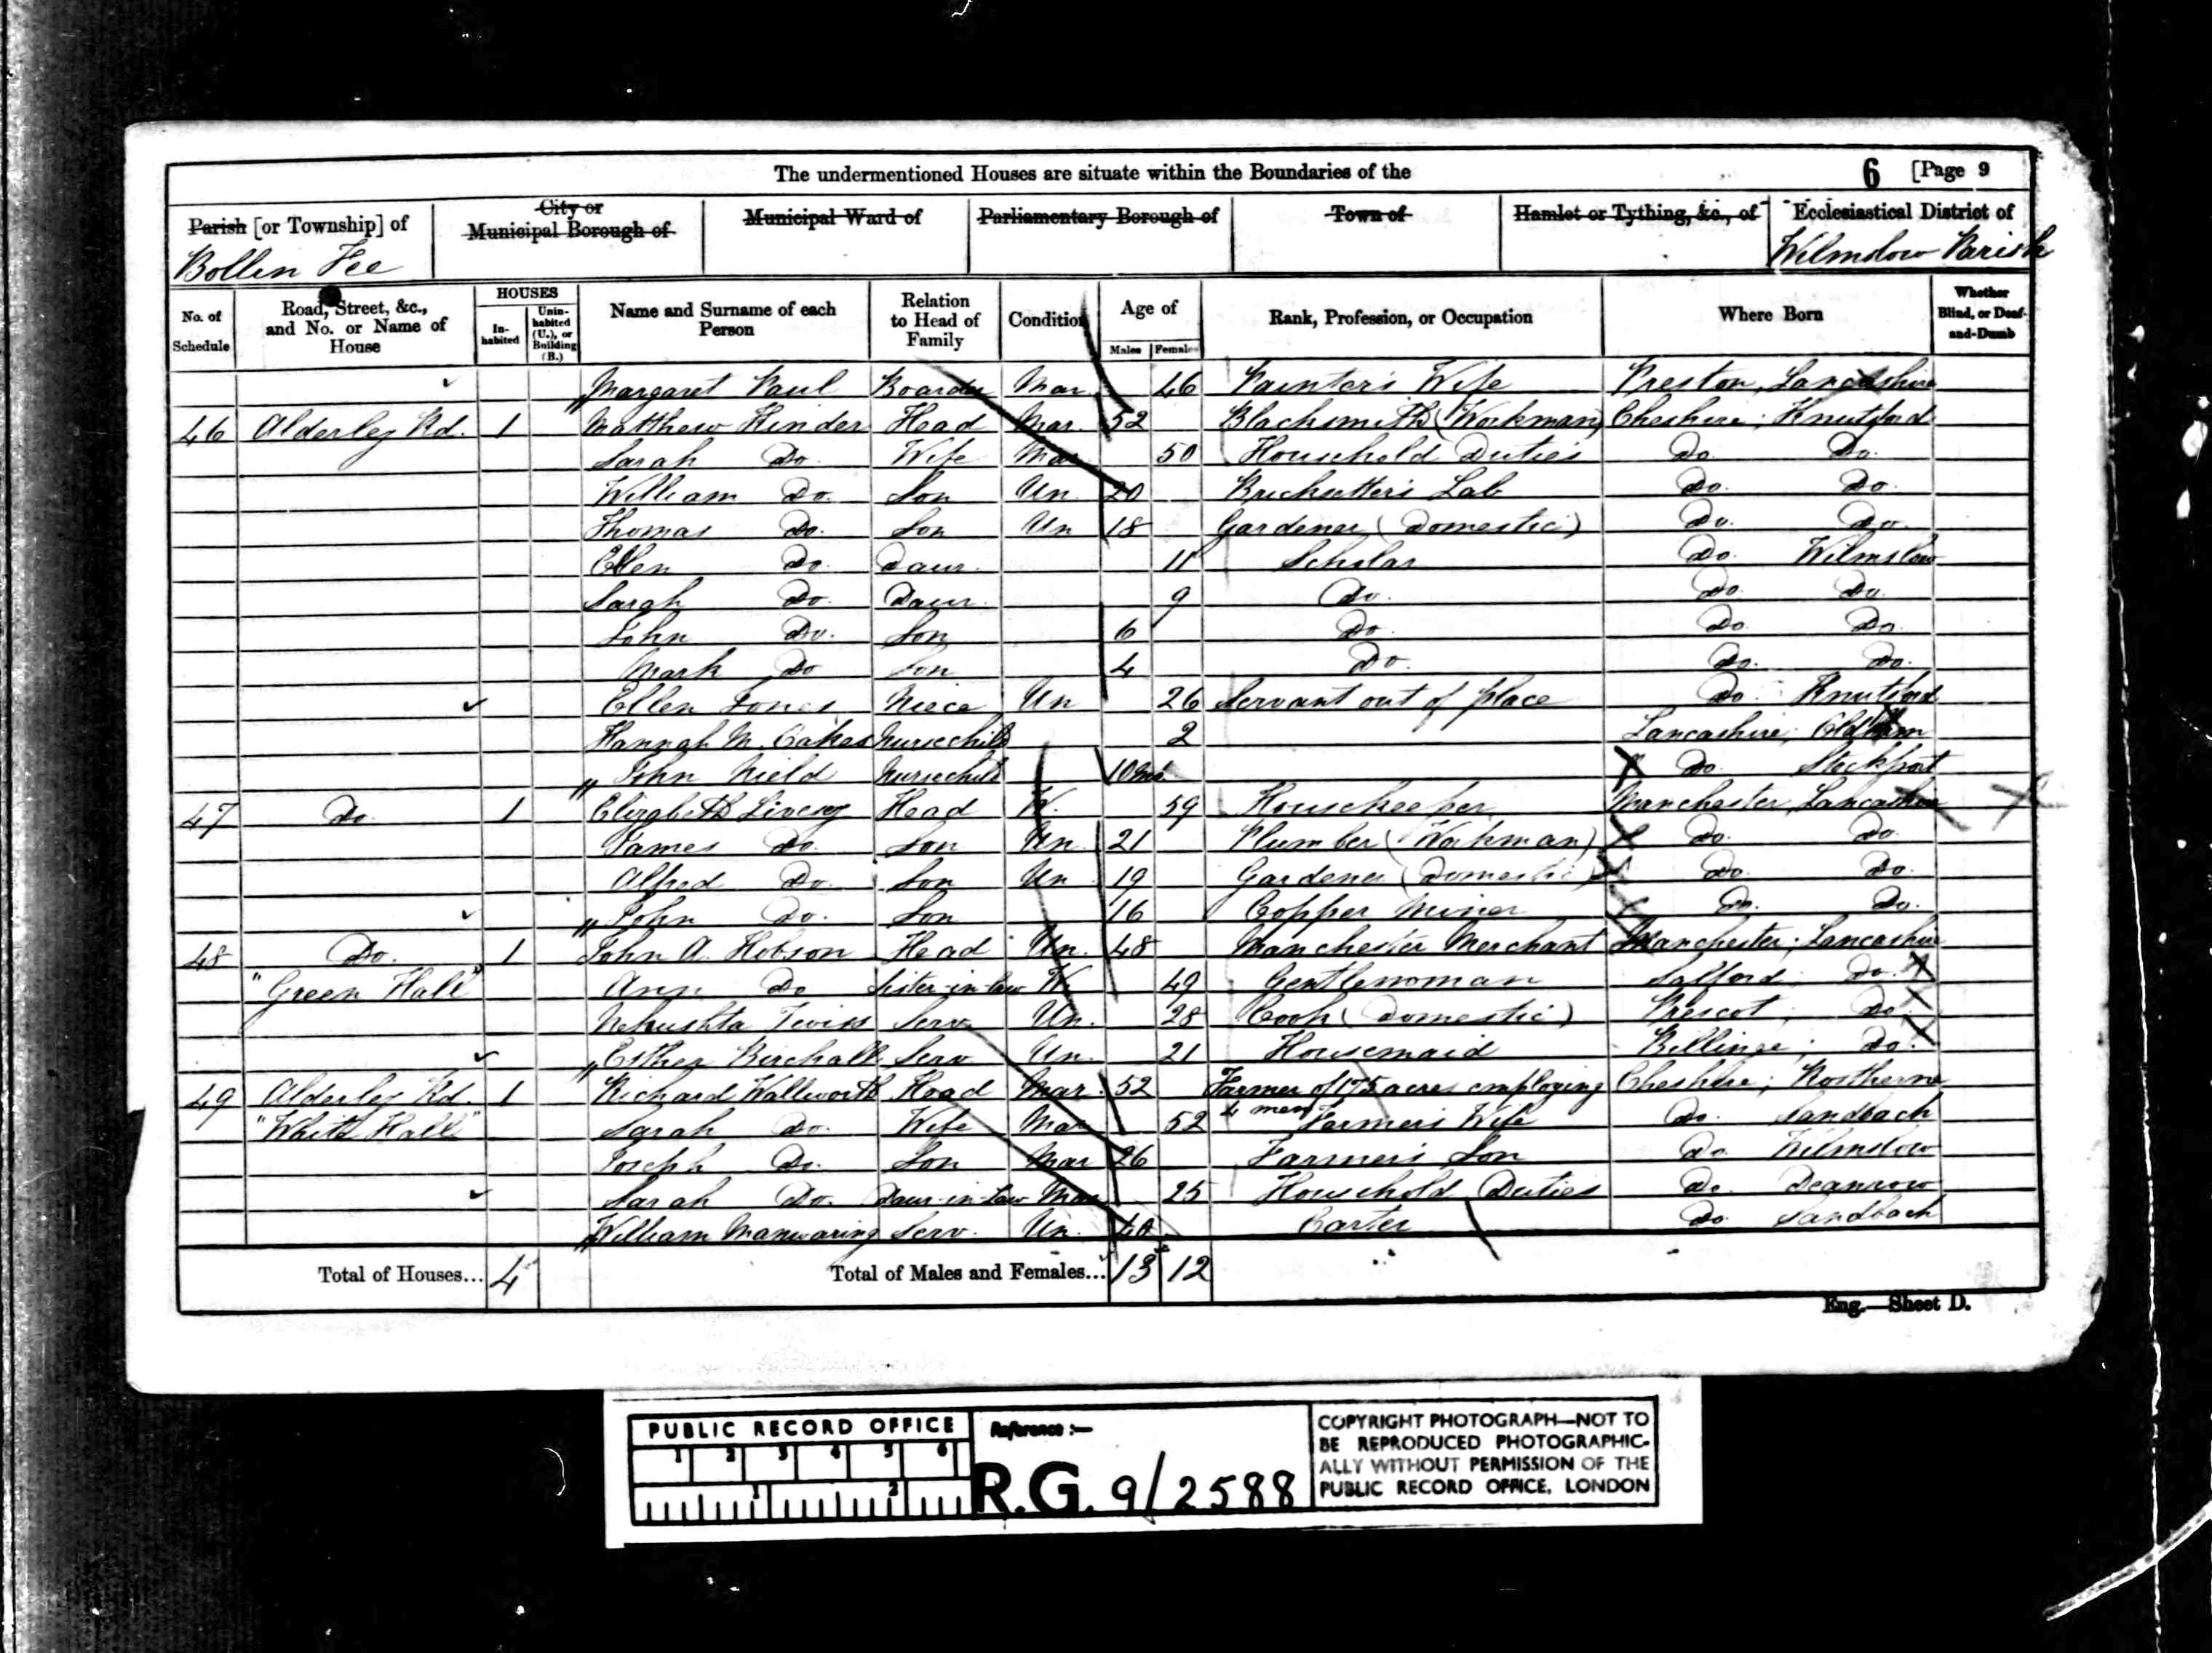 The undermentioned Houses are situate within the Boundaries of the 6 [Page 9
Parish [or Township] of City or Municipal Borough of Municipal Ward of Parliamentary Borough of Town of Hamlet or Tything, &c., of Ecclesiastical District of
Bollin Fee Wilmslow Parish
No. of Schedule Road, Street, &c., and No. or Name of House HOUSES Inhabited Uninhabited (U.), or Building (B.) Name and Surname of each Person Relation to Head of Family Condition Age of Males Females Rank, Profession, or Occupation Where Born Whether Blind, or Deaf-and-Dumb
Margaret Paul Boarder Mar 46 Painter's Wife Preston, Lancashire
46 Alderley Rd. 1 Matthew Kinder Head Mar. 52 Blacksmith (Workman) Cheshire; Knutsford
Sarah Do. Wife Mar 50 Household Duties Do. Do.
William Do. Son Un 20 Bricksetter's Lab Do. Do.
Thomas Do. Son Un 18 Gardener (Domestic) Do. Do.
Ellen Do. Daur. 11 Scholar Do. Wilmslow
Sarah Do. Daur. 9 Do. Do. Do.
John Do. Son 6 Do. Do. Do.
Mark Do Son 4 Do. Do. Do.
Ellen Jones Niece Un 26 Servant out of place Do. Knutsford
Hannah M. Oakes Nursechild 2 Lancashire; Oldham
John Nield Nursechild 10 Mo. Do. Stockport
47 Do. 1 Elizabeth Livesey Head W. 59 Housekeeper Manchester, Lancashire
James Do. Son Un. 21 Plumber (Workman) Do. Do.
Alfred Do. Son Un 19 Gardener (Domestic) Do. Do.
John Do. Son 16 Copper Miner Do. Do.
48 Do. 1 John A. Hobson Head Un. 48 Manchester Merchant Manchester; Lancashire
"Green Hall" Ann Do Sister-in-law W. 49 Gentlewoman Salford; Do.
Nehushta Twiss Serv. Un. 28 Cook (Domestic) Prescot; Do.
Esther Birchall Serv Un. 21 Housemaid Billinge; Do.
49 Alderley Rd. 1 Richard Wallworth Head Mar. 52 Farmer of 175 acres employing Cheshire; Rostherne
"White Hall" Sarah Do. Wife Mar 52 4 men Farmer's Wife Do. Sandbach
Joseph Do. Son Mar 26 Farmer's Son Do. Wilmslow
Sarah Do. Daur-in-Law Mar. 25 Household Duties Do. Deanrow
William Manwaring Serv. Un. 40 Carter Do. Sandbach
Total of Houses... 4 Total of Males and Females... 13 12
Eng.—Sheet D.
PUBLIC RECORD OFFICE
1 2 3 4 5 6
1 2
Reference :—
R.G. 9/2588
COPYRIGHT PHOTOGRAPH—NOT TO
BE REPRODUCED PHOTOGRAPHIC-
ALLY WITHOUT PERMISSION OF THE
PUBLIC RECORD OFFICE, LONDON